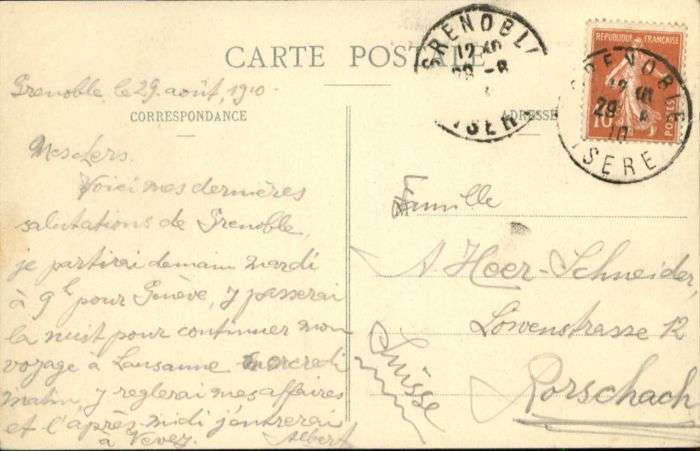 CARTE POSTALE
Grenoble, le 29 août, 1910
CORRESPONDANCE
ADRESSE
Mes chers.
Voici mes dernières
salutations de Grenoble,
je partirai demain mardi
à 9h pour Genève, j'y passerai
la nuit pour continuer mon
voyage à Lausanne mercredi
matin, j'y reglerai mes affaires
et l'après-midi j'entrerai
à Vevey. Albert
Famille
A. Heer-Schneider,
Löwenstrasse 12
Rorschach
Suisse
GRENOBLE
12 40
29 -8
ISERE
REPUBLIQUE FRANÇAISE
10
POSTES
GRENOBLE
12 40
29 8
10
ISERE